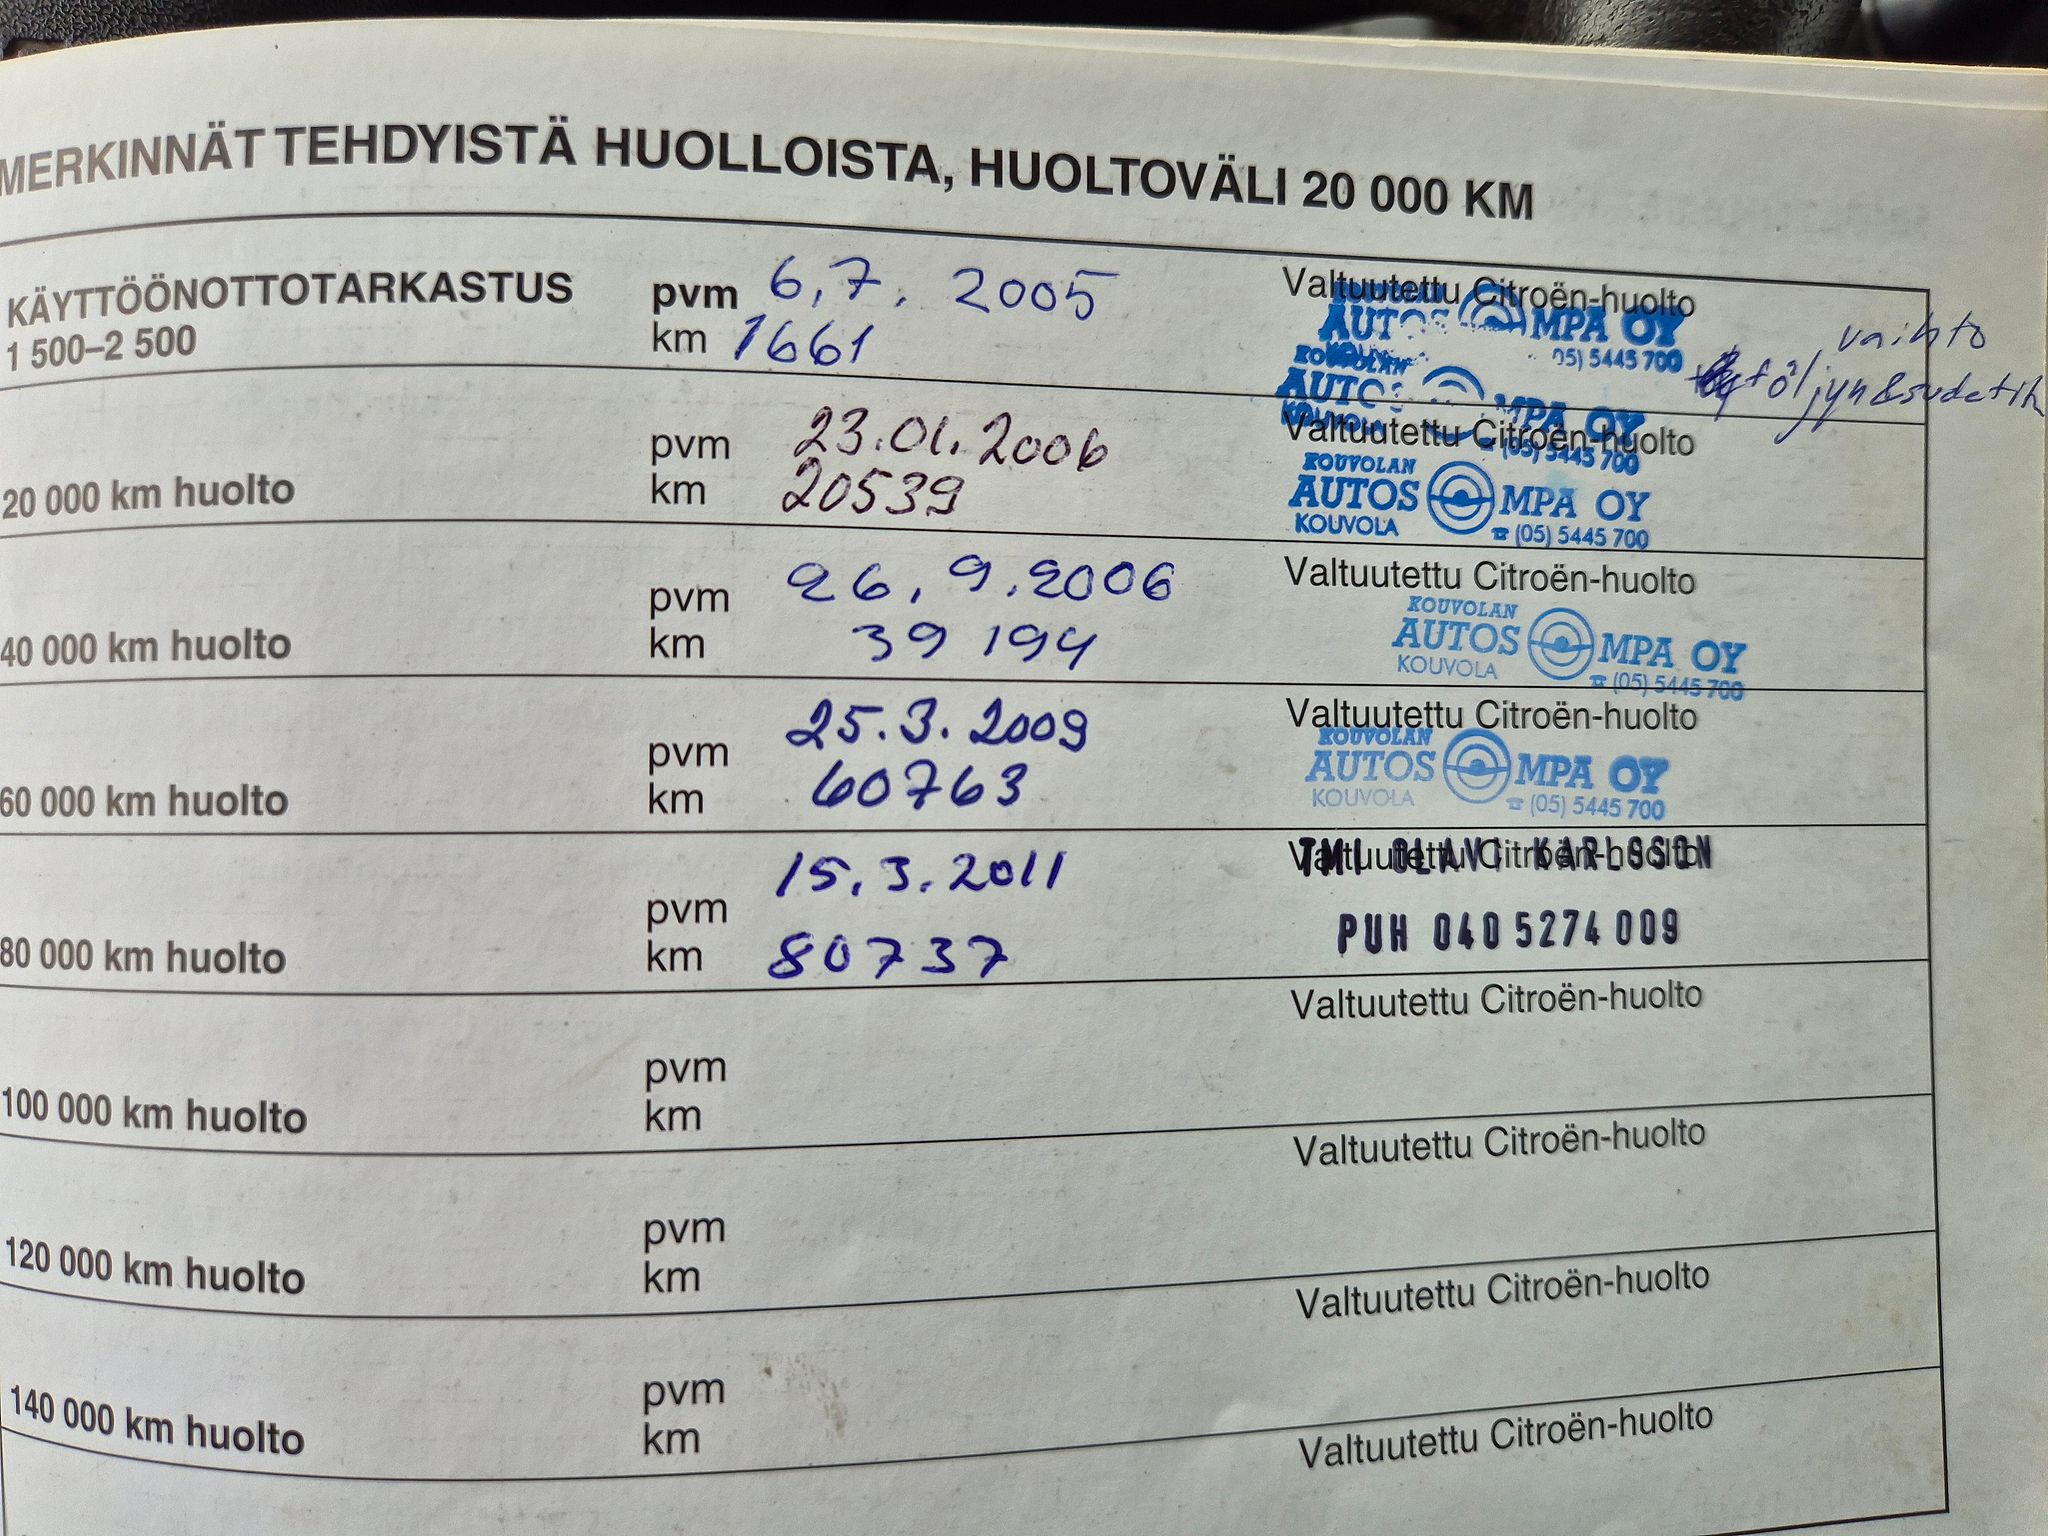 MERKINNÄT TEHDYISTÄ HUOLLOISTA, HUOLTOVÄLI 20 000 KM
KÄYTTÖÖNOTTOTARKASTUS
1 500–2 500
pvm 6.7. 2005
km 1661
Valtuutettu Citroën-huolto
KOUVOLAN
AUTOS MPA OY
KOUVOLA (05) 5445 700
vaihto
öljyn & sudatin
KOUVOLAN
AUTOS MPA OY
KOUVOLA ☎ (05) 5445 700
20 000 km huolto
pvm 23.01.2006
km 20539
Valtuutettu Citroën-huolto
KOUVOLAN
AUTOS MPA OY
KOUVOLA ☎ (05) 5445 700
40 000 km huolto
pvm 26.9.2006
km 39 194
Valtuutettu Citroën-huolto
KOUVOLAN
AUTOS MPA OY
KOUVOLA ☎ (05) 5445 700
60 000 km huolto
pvm 25.3.2009
km 60763
Valtuutettu Citroën-huolto
KOUVOLAN
AUTOS MPA OY
KOUVOLA ☎ (05) 5445 700
80 000 km huolto
pvm 15.3.2011
km 80737
Valtuutettu Citroën-huolto
TMI OLAVI KARLSSON
PUH 040 5274 009
100 000 km huolto
pvm
km
Valtuutettu Citroën-huolto
120 000 km huolto
pvm
km
Valtuutettu Citroën-huolto
140 000 km huolto
pvm
km
Valtuutettu Citroën-huolto
Valtuutettu Citroën-huolto